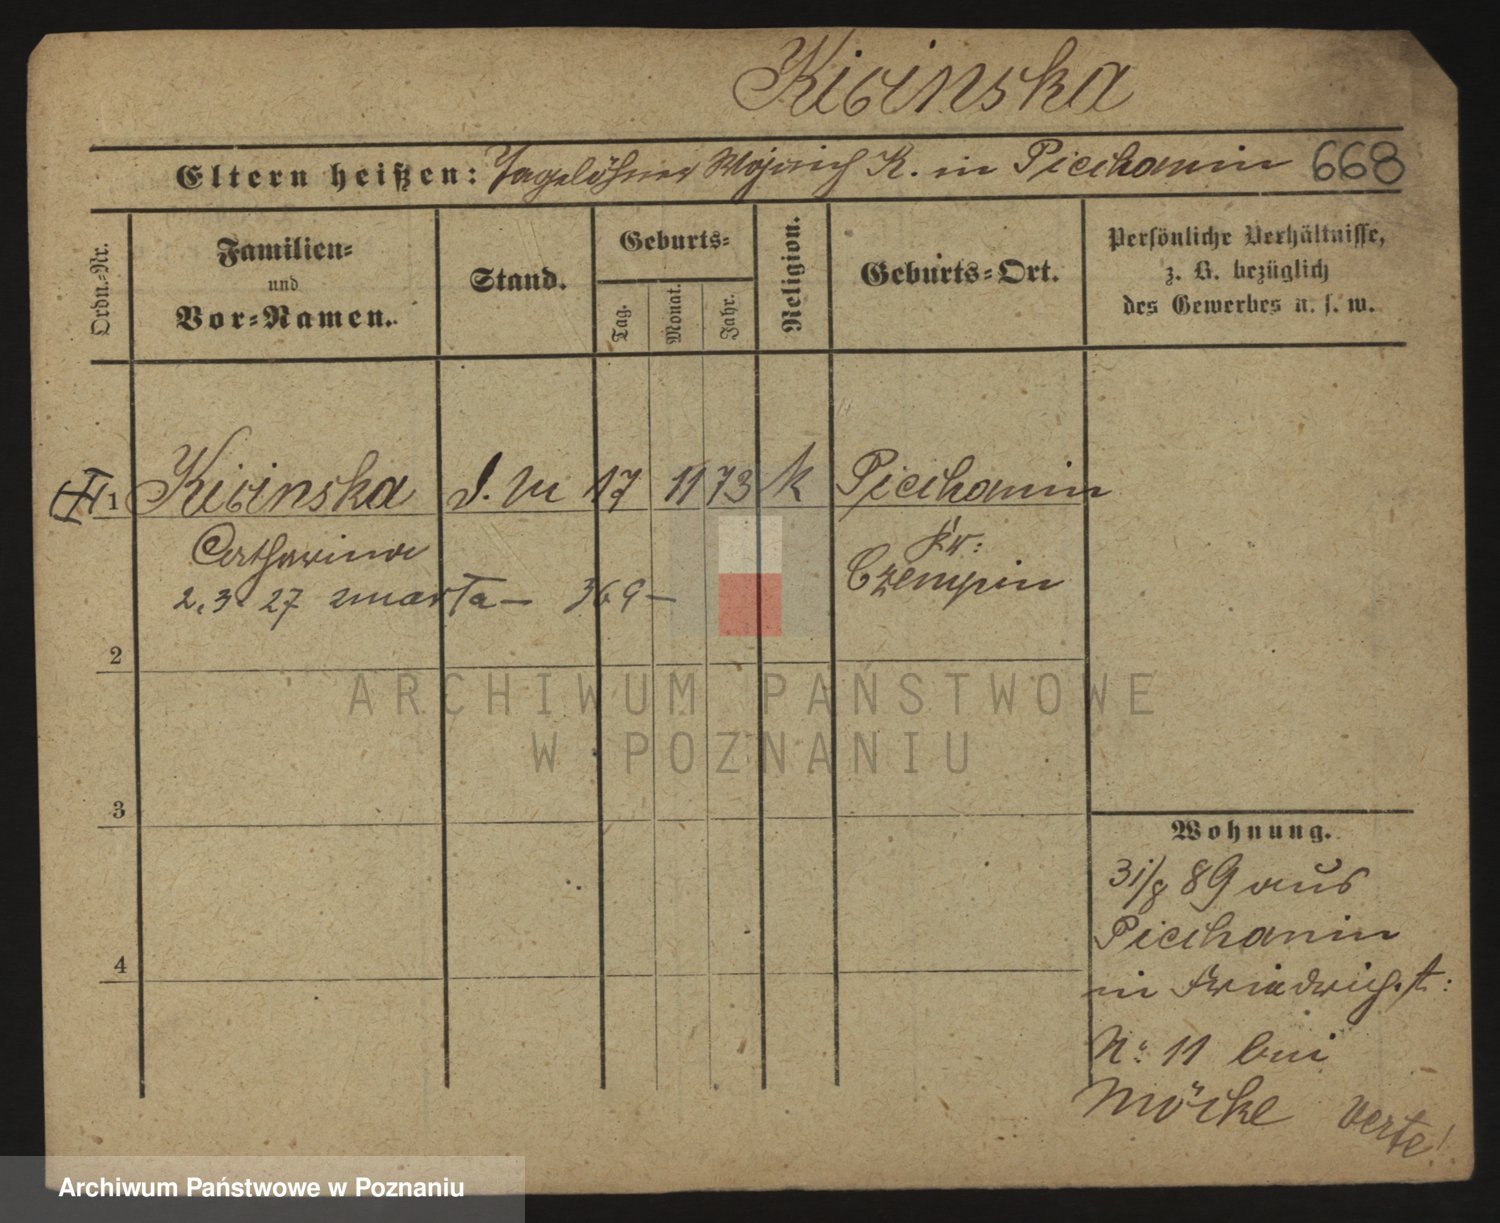 Kicinska
Eltern heißen: Tagelöhner K. in Piechanin 668
Ordn.-Nr.
Familien-
und
Vor-Namen.
Stand.
Geburts-
Tag.
Monat.
Jahr.
Religion.
Geburts-Ort.
Persönliche Verhältnisse,
z. B. bezüglich
des Gewerbes u. s. w.
1 Kicinska d. M 17 11 73 k Piechanin
Catharina Kr:
Czempin
2.3. 27 zmarła — 369 —
2
3
4
Wohnung.
31/8 89 aus
Piechanin
in Friedrichst:
N: 11 bei
Möcke verte!
ARCHIWUM PAŃSTWOWE
W POZNANIU
Archiwum Państwowe w Poznaniu